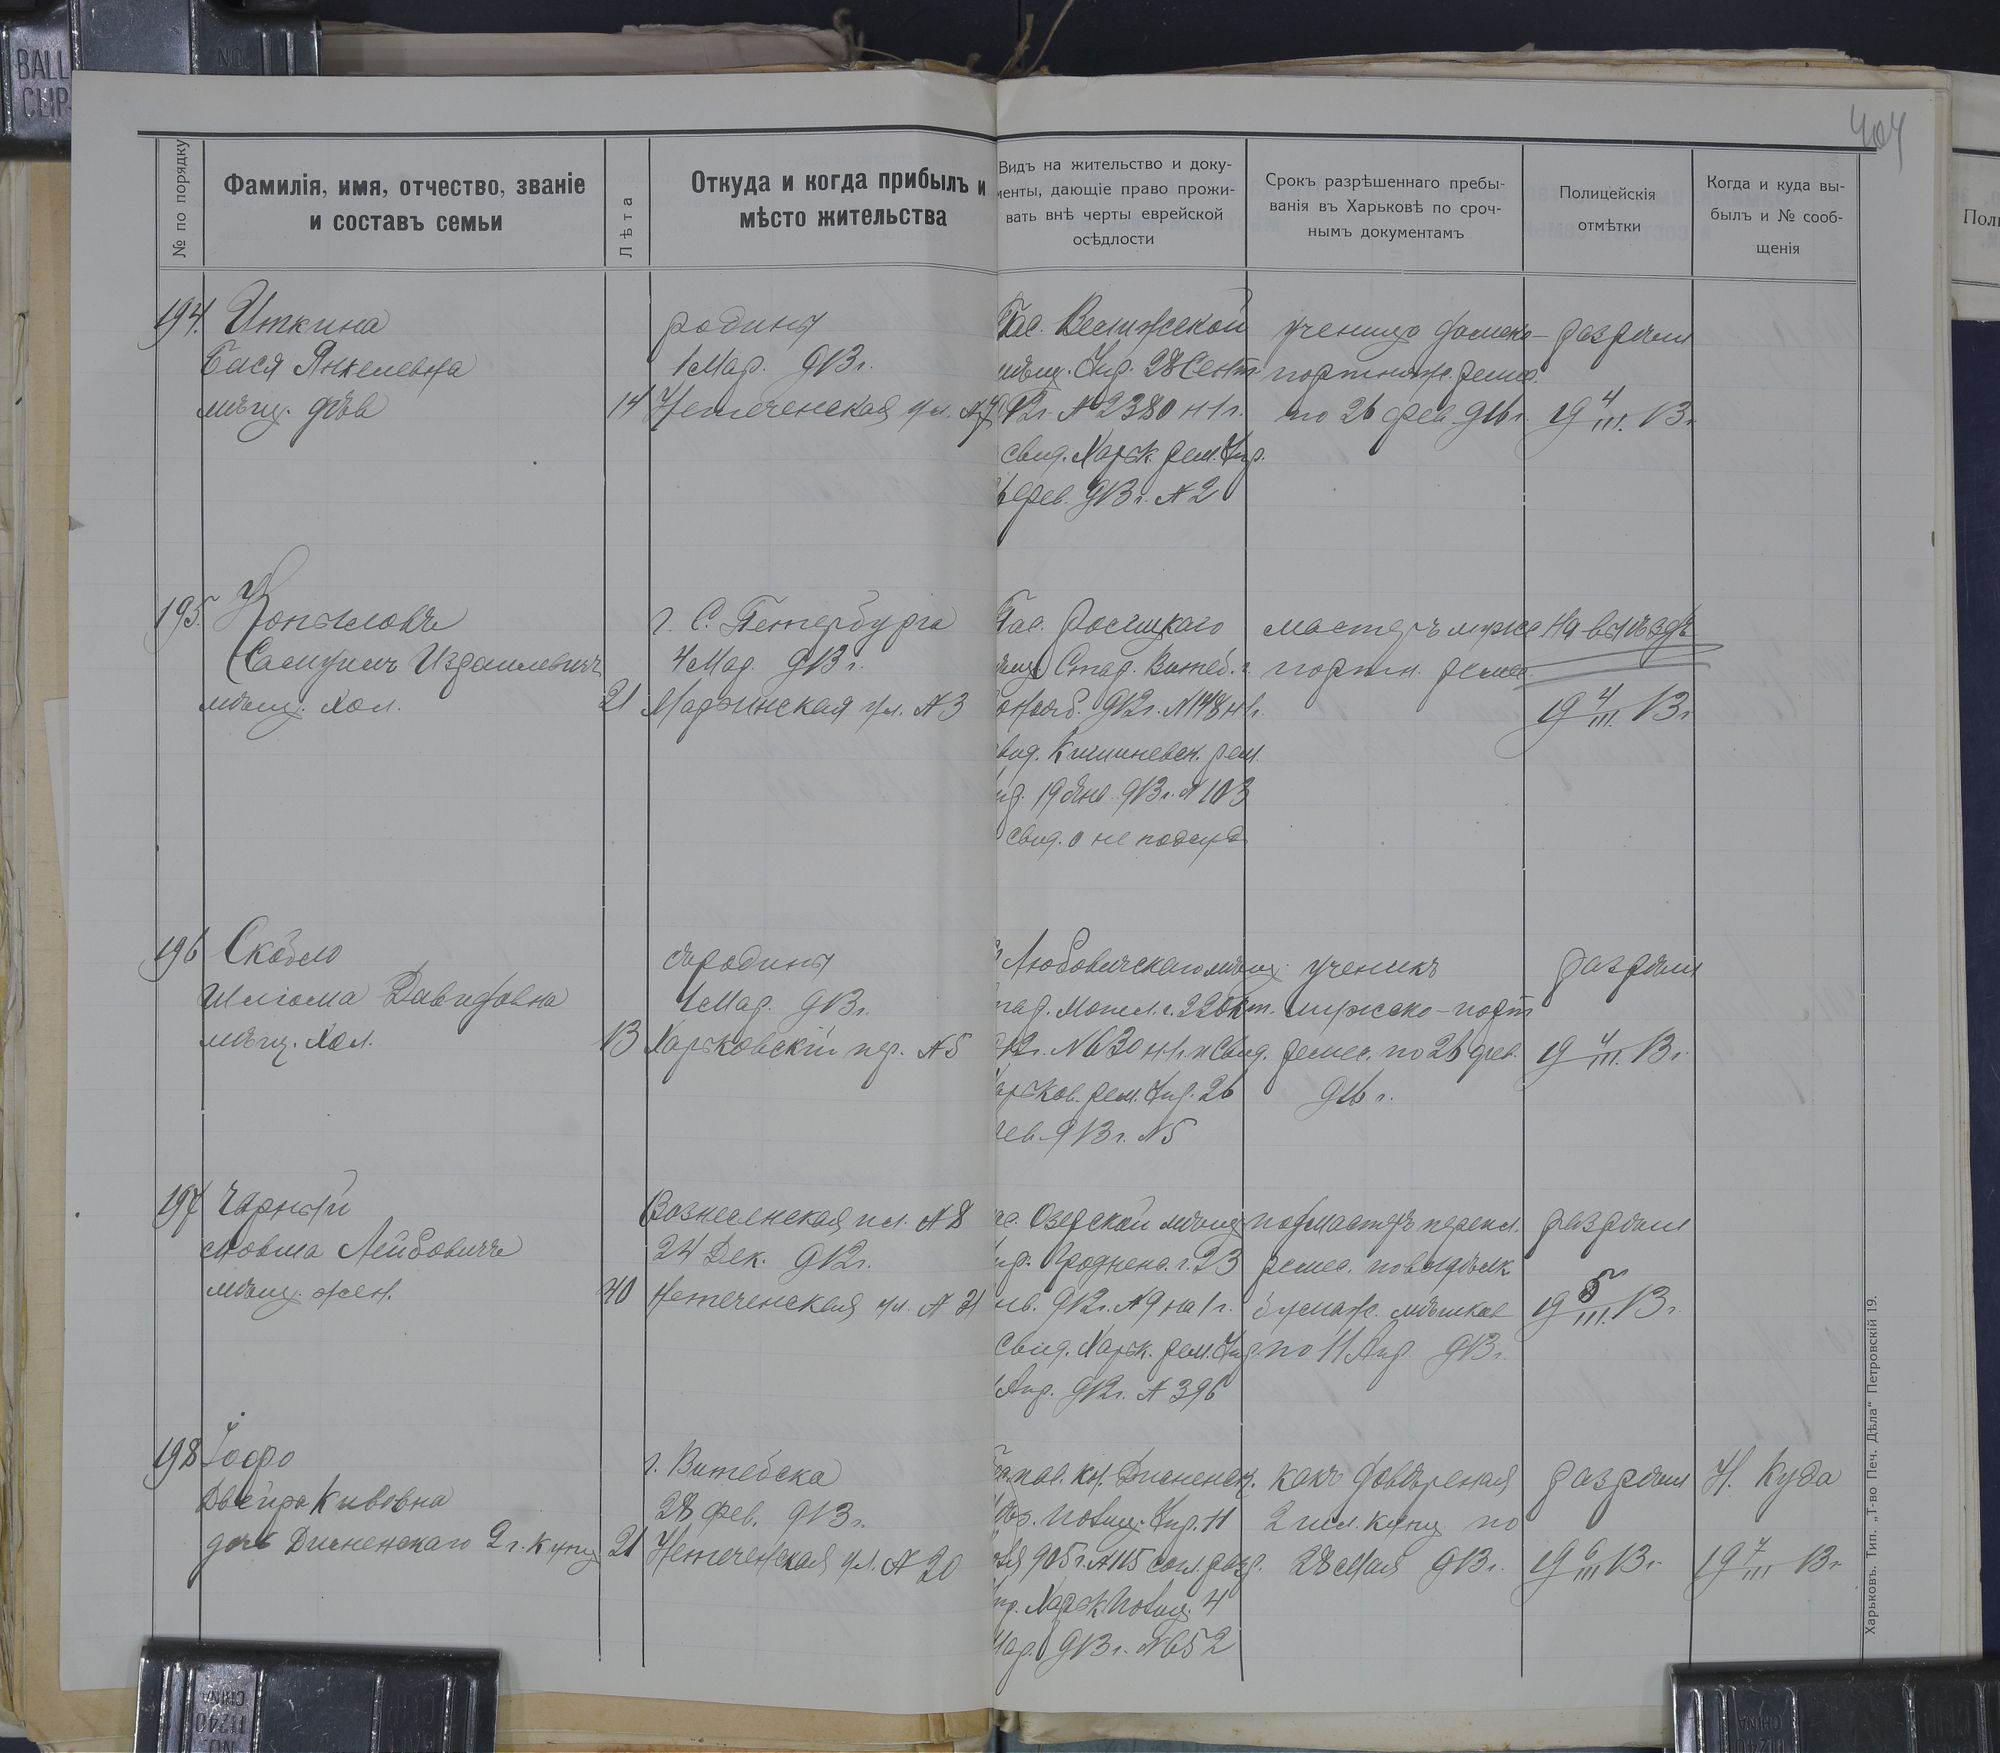 BALL
CLIP
NO.
404
№ по порядку
Фамилія, имя, отчество, званіе
и составъ семьи
Лѣта
Откуда и когда прибылъ и
мѣсто жительства
Видъ на жительство и доку-
менты, дающіе право прожи-
вать внѣ черты еврейской
осѣдлости
Срокъ разрѣшеннаго пребы-
ванія въ Харьковѣ по сроч-
нымъ документамъ
Полицейскія
отмѣтки
Когда и куда вы-
былъ и № сооб-
щенія
Поли
194. Иткина
Бася Янкелевна
мѣщ. дѣв
14
родины
1 Мар. 913 г.
Нетеченская ул.
Пас. Велижской
мѣщ. Упр. 28 Сент
912 г. № 2380 н 1 г.
свид. Харьк. рем. Упр.
фев. 913 г. № 2
ученица дамско-
портняж. ремес.
по 26 фев. 916 г.
разрѣш
19 4/III. 13 г.
195. Копыловъ
Самуилъ Израилевичъ
мѣщ. хол.
21
г. С. Петербурга
4 Мар. 913 г.
Марьинская ул. № 3
Пас.
мѣщ. Стар. Витеб. г.
912 г. № 148 н 1 г.
свид. Кишиневск. рем.
Упр. 19 Янв. 913 г. № 103
свид. о не подсуд
мастеръ мужс
портн. ремес.
на выѣздъ
19 4/III. 13 г.
196 Скобло
Шлiома Давидовна
мѣщ. хол.
13
родины
1 Мар. 913 г.
Харьковскій пер. № 5
Любовичскаго мѣщ.
стар. Могил. г. 22 Окт.
912 г. № 630 н 1 г. и свид.
Харьков. рем. Упр. 26
фев. 913 г. № 5
ученикъ
мужско-порт
ремес. по 26 фев.
916 г.
разрѣш
19 4/III. 13 г.
197 Чарный
Мовша Лейбовичъ
мѣщ. жен.
40
Вознесенская пл. № 8
24 Дек. 912 г.
Нетеченская ул. № 21
Пас. Озерской мѣщ
Упр. Гроднен. г. 23
912 г. № 9 на 1 г.
Свид. Харьк. рем. Упр
Апр. 912 г. № 396
подмастеръ перепл.
ремес. по выдѣлк
бумаж. мѣшков
по 11 Апр. 913 г.
разрѣш
19 5/III. 13 г.
198 Іоффо
Двейра Кивовна
дочь Дисненскаго 2 г. купц
21
г. Витебска
28 фев. 913 г.
Нетеченская ул. № 20
Дисненск.
Полиц. Упр. 11
905 г. № 115 согл. разр.
Упр. Харьк. Полиц. 4
Мар. 913 г. № 652
какъ довѣреная
2 гил. купц по
28 Мая 913 г.
разрѣш
19 6/III 13 г.
Н. Куда
19 7/III 13 г.
Харьковъ. Тип. „Т-во Печ. Дѣла“ Петровскій 19.
CHINA
11240
NO.
CHINA
11240